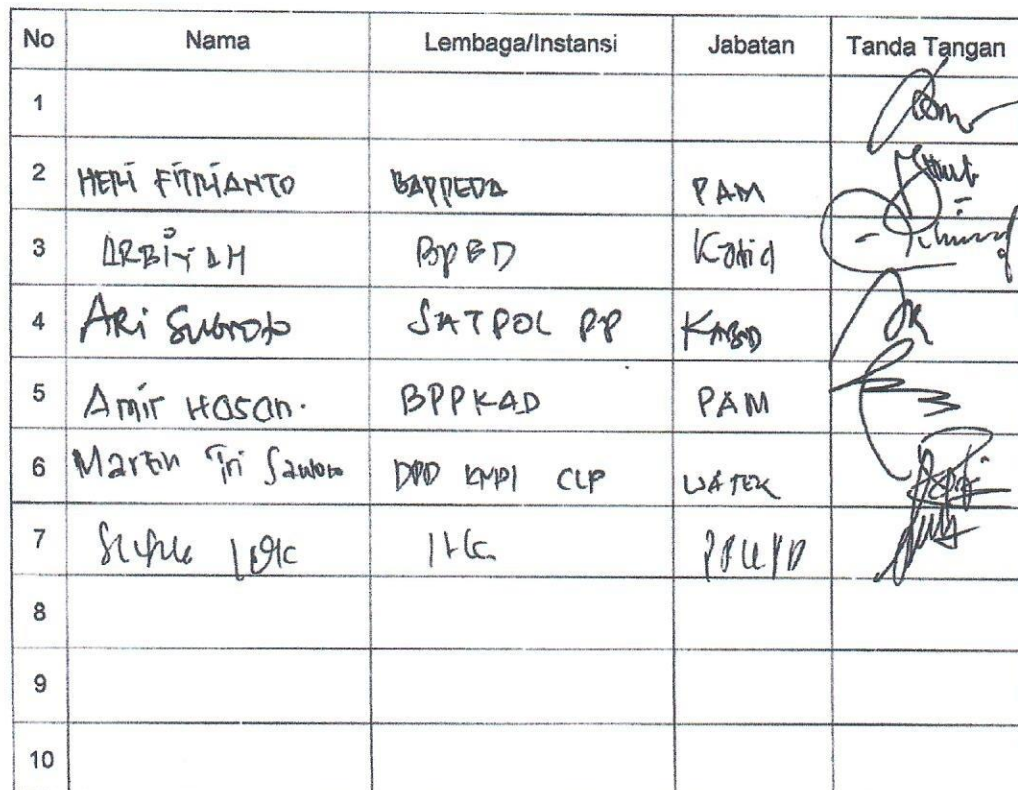 No Nama Lembaga/Instansi Jabatan Tanda Tangan
1
2 HERI FITRIANTO BAPPEDA PAM
3 ARBIYAH BPBD Kabid
4 ARi Subroto SATPOL PP KABID
5 Amir Hasan. BPPKAD PAM
6 Martin Tri DPD KNPI CLP WATEK
7
8
9
10